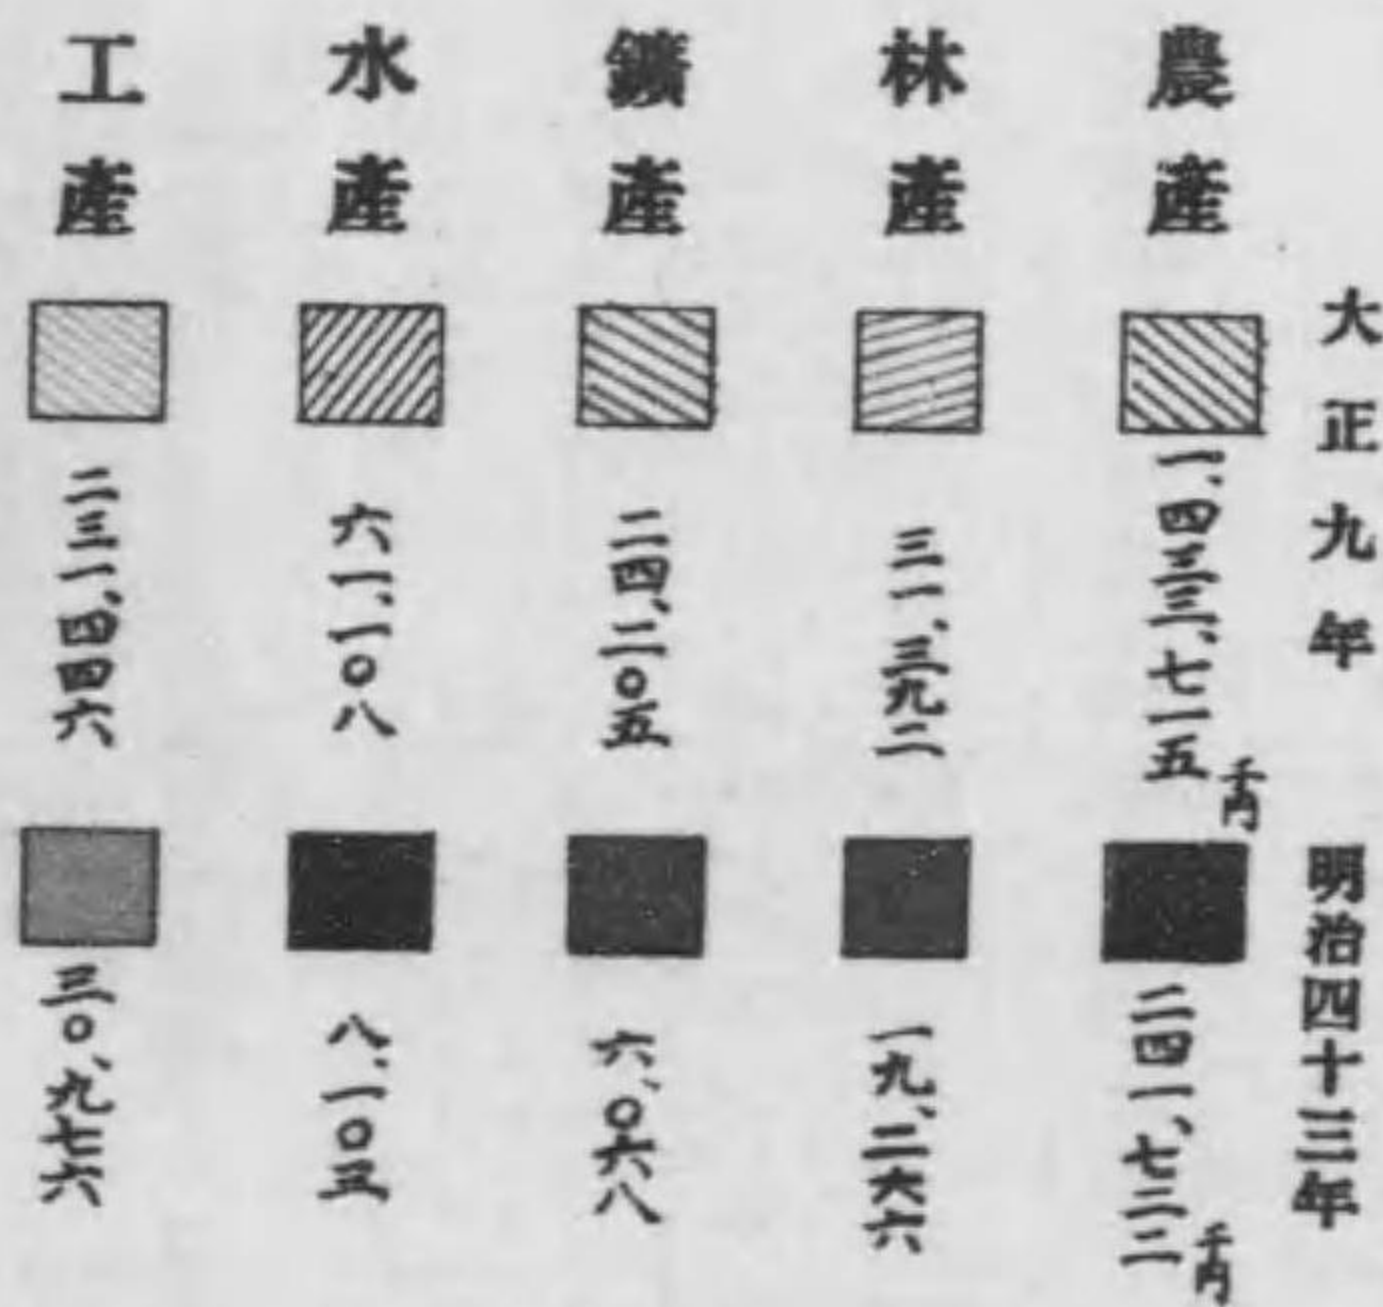 大正九年
明治四十三年
農産
一、四三三、七一五千円
二四一、七二二千円
林産
三一、三九二
一九、二六六
鑛産
二四、二〇五
六、〇六八
水産
六一、一〇八
八、一〇三
工産
二三一、四四六
三〇、九七六